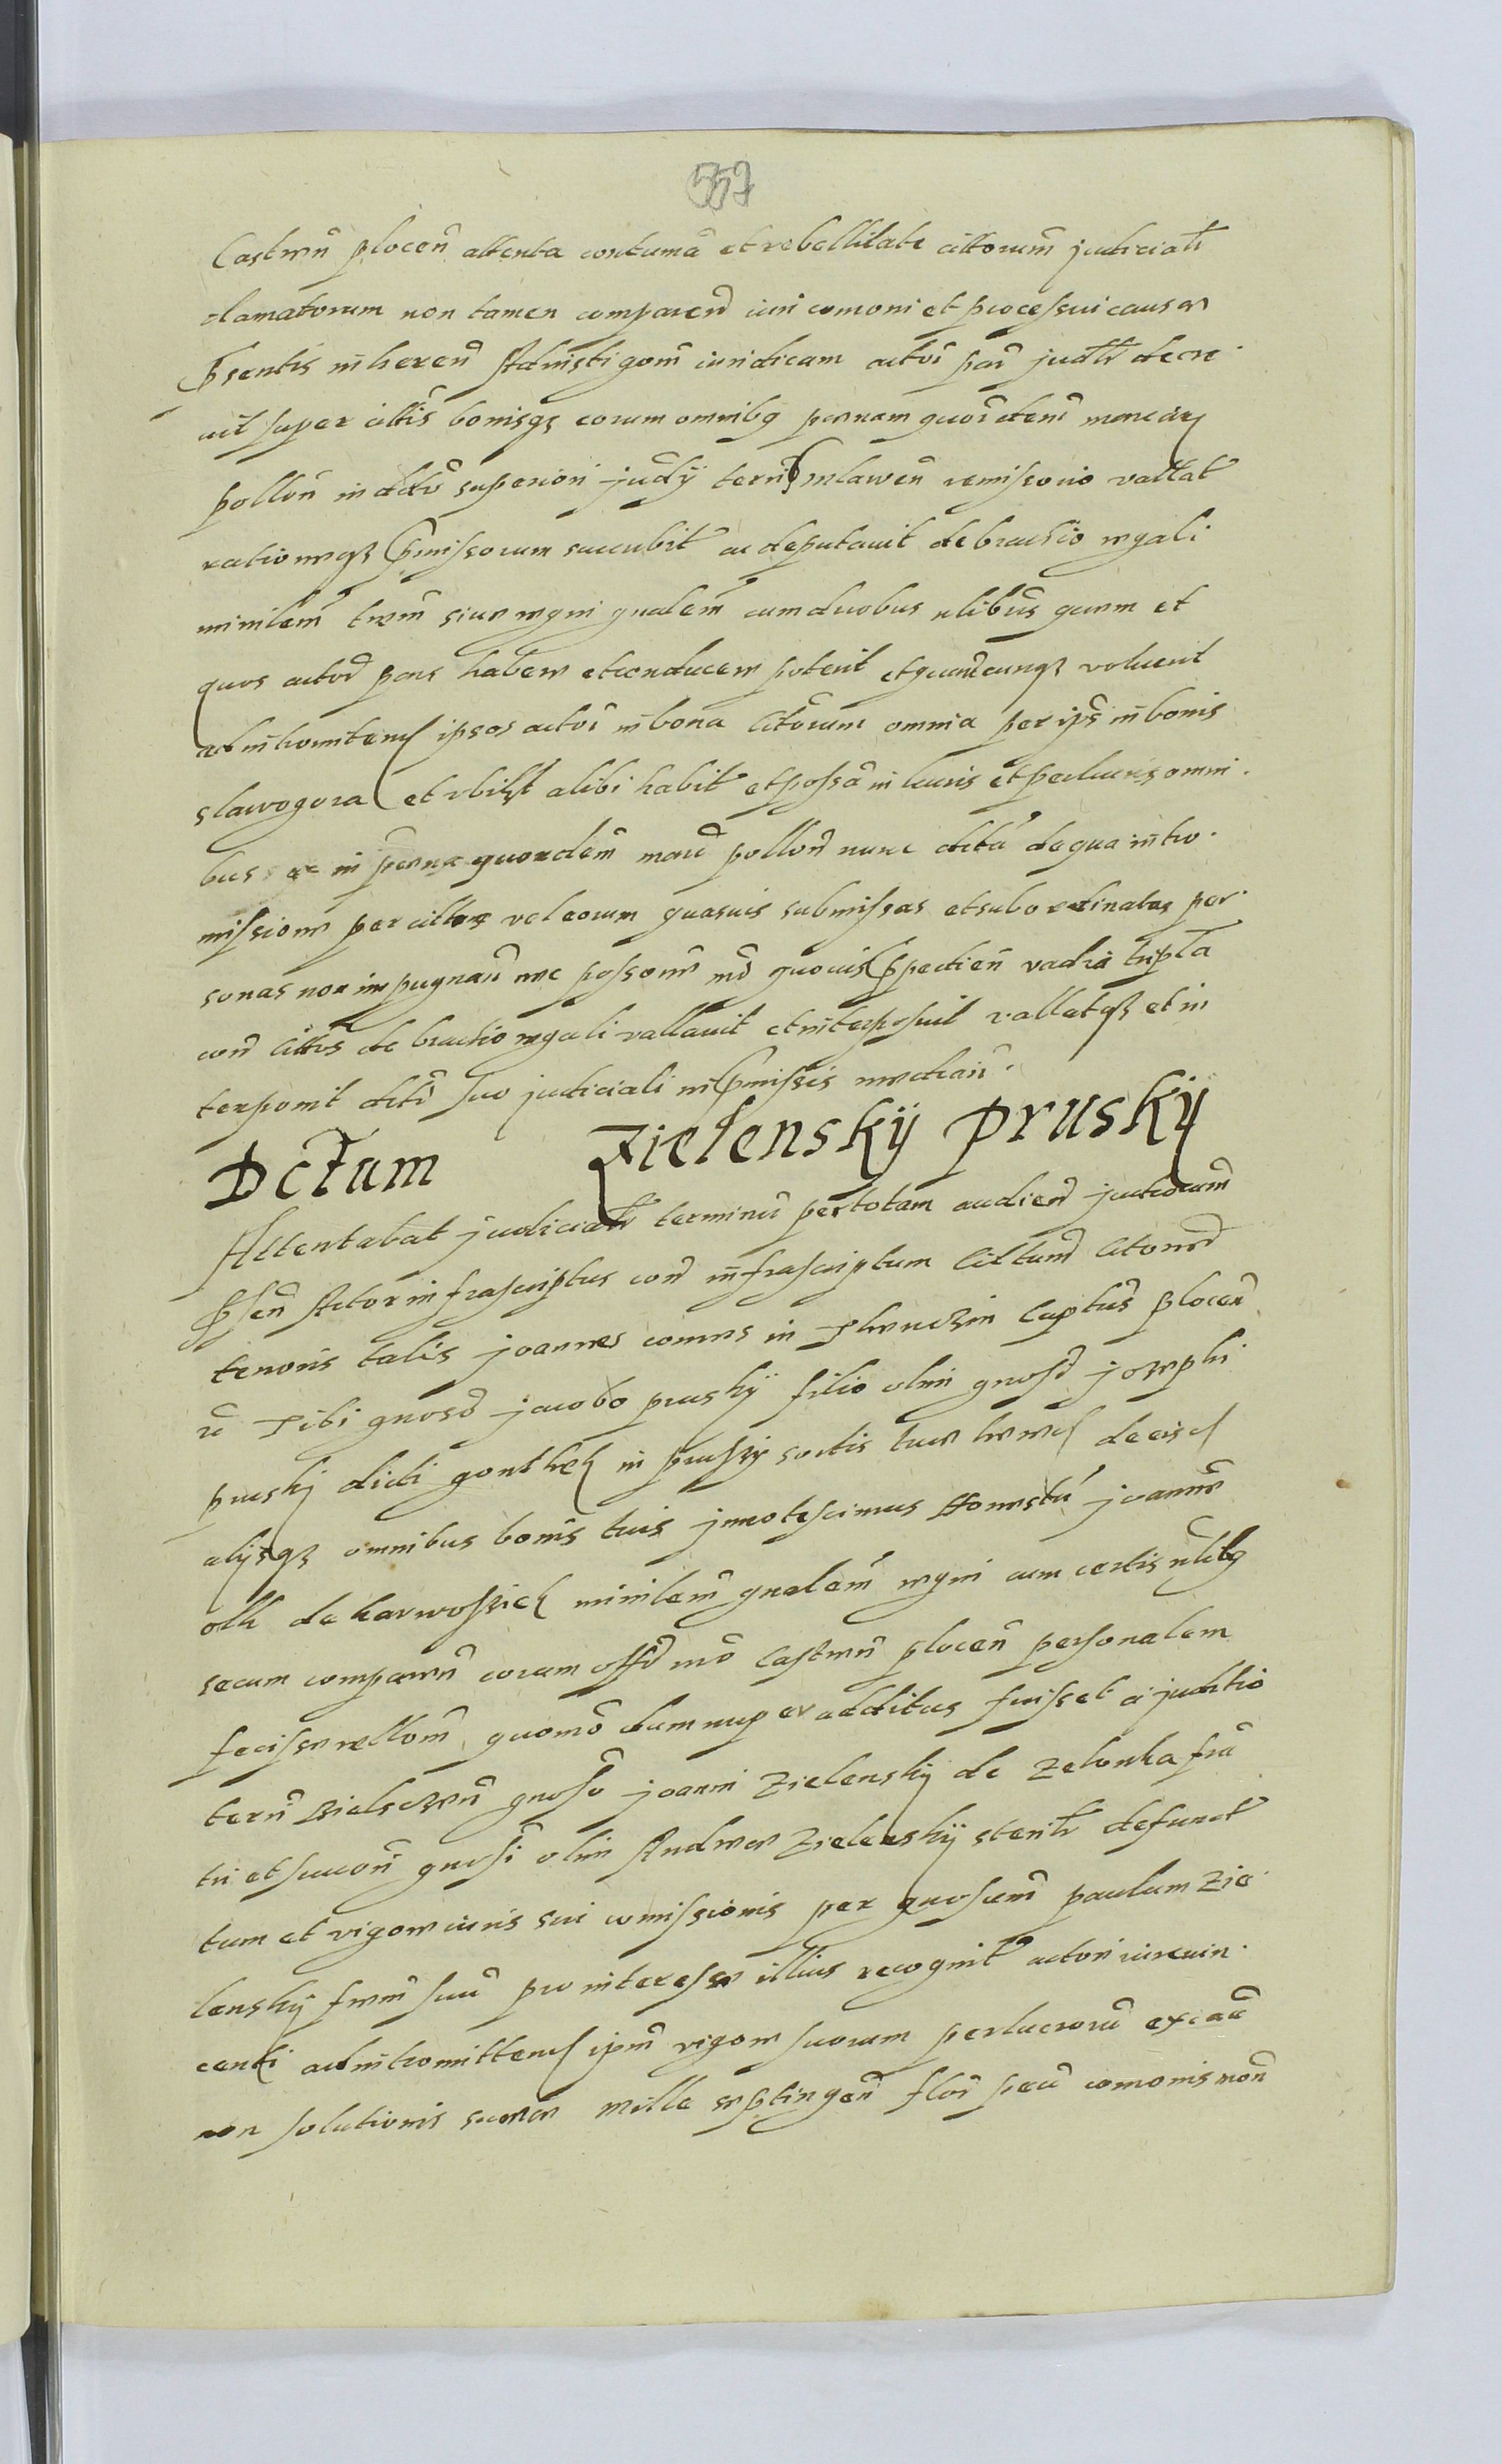 557
Castren̄ plocen̄ attenta contuma et rebellitate cittorum judicialr
clamatorum non tamen comparen̄ iuri comoni et processui causæ
p̄sentis inheren̄ Adiustigoni iuridicam actōi par̄ judlr decre
uit super cittis bonisq eorum omnibq pœnam quordem marcar
pollon̄ in dcto superiori judÿ terrī mlawen̄ remissorio vallat
rationeq p̄missorum succubit ac deputauit de brachio regali
minilem trem̄ siue regni gnalem cum duobus nlibus quem et
quos actor̄ pars habere et conducere poterit et quandcunq voluerit
ad intromitten ipsos actōi in bona Citōrum omnia per ips̄ in bonis
slawogora et vbilt alibi habit et possā in lucris et perlucris omni
bus ac in pœna quordem mar̄ pollon̄ nunc dcta de qua intro
missione per cittos vel eorum quasuis submissas et subordinatas per
sonas non impugnan̄ nec possone mō quouis p̄pedien̄ vadia tripla
con̄ Cittos de brachio regali vallauit et interposuit vallatq et in
terponit dcto suo judiciali in p̄missis median̄
Dctum Zielenskÿ Pruskÿ
Attentabat judicialr terminū per totam audien̄ judiciorum̄
P̄sen̄ Actor infrascriptus con̄ infrascriptum Cittum̄ Citone
tenoris talis Joannes comes in Capten̄s plocen̄
r̄ Tibi gnoso Jacobo pruskÿ filio olim gnosi josephi
pruskj dicti gonthek in sortis tuæ de eisd
alijsq omnibus bonis tuis jnnotescimus Honestū joannē
olk de karwosziek minilem gnalem regni cum certis nlibq
secum comparen̄ coram offō nrō Castren̄ plocen̄ personalem
fecisse rellonē, quomō dum nuper additus fuisset a juditio
terrī Bielscen̄ gnoso joanni Zielenskÿ de Zelonka fra
tri et succon̄ gnosi olim Andreæ Zielenskÿ sterilr defunct
tum et vigore iuris sui comissionis per gnosum paulum Zie
lenskÿ frem suū pro interesse illius recognit actori iureuin
centi ad intromitten ipm̄ vigore suorum perlucrorū ex cā
non solutionis summæ mille septingen̄ flor̄ pecū comonis mon̄